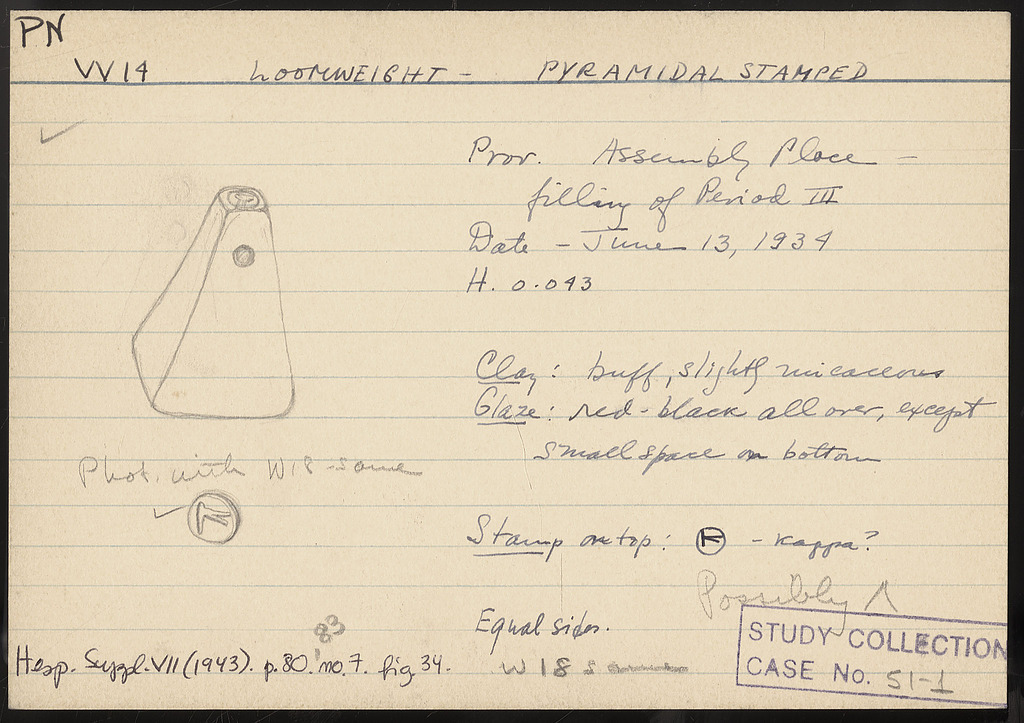 PN
VV14 LOOMWEIGHT - PYRAMIDAL STAMPED
Prov. Assembly Place -
filling of Period III
Date - June 13, 1934
H. 0.043
Clay: buff, slightly micaceous
Glaze: red-black all over, except
small space on bottom
Phot. with W18 - same
Stamp on top: K - kappa?
Possibly Λ
Equal sides.
83
Hesp. Suppl. VII (1943). p. 80. no. 7. fig. 34.
W18 s
STUDY COLLECTION
CASE No. 51-1